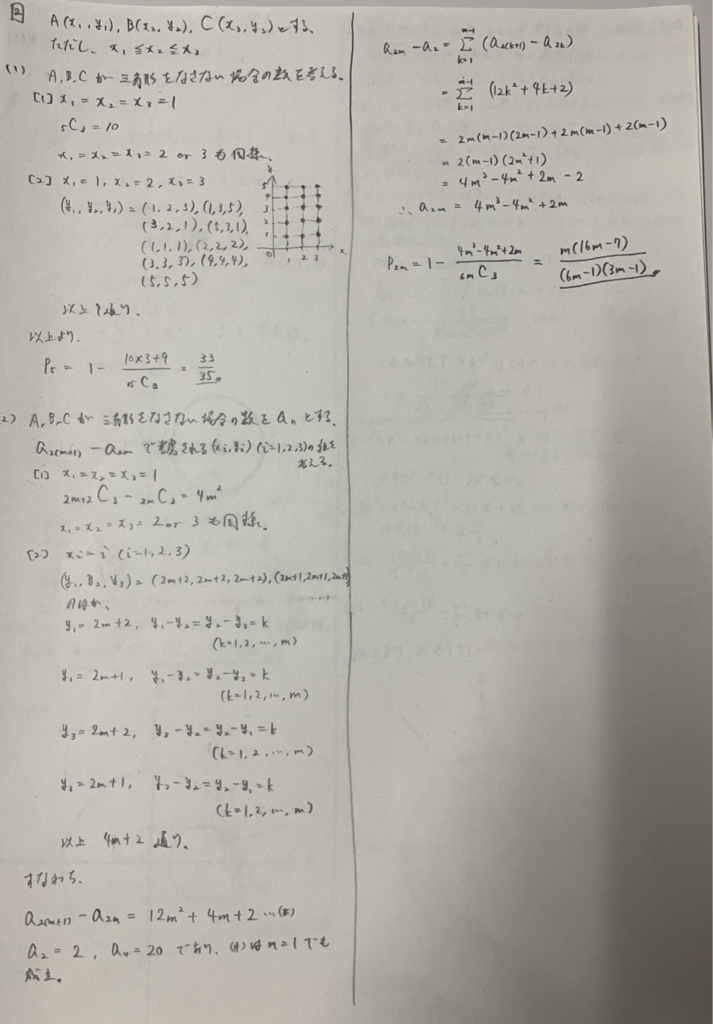 2
A(x₁, y₁), B(x₂, y₂), C(x₃, y₃)とする。
ただし、x₁ ≤ x₂ ≤ x₃
(1) A, B, C が三角形をなさない場合の数を考える。
[1] x₁ = x₂ = x₃ = 1
₅C₃ = 10
x₁ = x₂ = x₃ = 2 or 3 も同様。
[2] x₁ = 1, x₂ = 2, x₃ = 3
(y₁, y₂, y₃) = (1, 2, 3), (1, 3, 5),
(3, 2, 1), (5, 3, 1),
(1, 1, 1), (2, 2, 2),
(3, 3, 3), (4, 4, 4),
(5, 5, 5)
y
5
4
3
2
1
0 1 2 3 x
以上 9 通り。
以上より、
P₅ = 1 - (10×3+9)/₁₅C₃ = 33/35
(2) A, B, C が三角形をなさない場合の数を aₙ とする。
a₂₍ₘ₊₁₎ - a₂ₘ で考慮される (xᵢ, yᵢ) (i=1,2,3)の組を
考える。
[1] x₁ = x₂ = x₃ = 1
₂ₘ₊₂C₃ - ₂ₘC₃ = 4m²
x₁ = x₂ = x₃ = 2 or 3 も同様。
[2] xᵢ = i (i=1, 2, 3)
(y₁, y₂, y₃) = (2m+2, 2m+2, 2m+2), (2m+1, 2m+1, 2m+1)
のほか、
y₁ = 2m+2, y₁-y₂ = y₂-y₃ = k
(k=1, 2, …, m)
y₁ = 2m+1, y₁-y₂ = y₂-y₃ = k
(k=1, 2, …, m)
y₃ = 2m+2, y₃-y₂ = y₂-y₁ = k
(k=1, 2, …, m)
y₃ = 2m+1, y₃-y₂ = y₂-y₁ = k
(k=1, 2, …, m)
以上 4m+2 通り。
すなわち、
a₂₍ₘ₊₁₎ - a₂ₘ = 12m² + 4m + 2 …(※)
a₂ = 2, a₄ = 20 であり、(※)は m=1 でも
成立。
a₂ₘ - a₂ = Σ_{k=1}^{m-1} (a₂₍ₖ₊₁₎ - a₂ₖ)
= Σ_{k=1}^{m-1} (12k² + 4k + 2)
= 2m(m-1)(2m-1) + 2m(m-1) + 2(m-1)
= 2(m-1)(2m²+1)
= 4m³ - 4m² + 2m - 2
∴ a₂ₘ = 4m³ - 4m² + 2m
P₂ₘ = 1 - (4m³-4m²+2m)/₆ₘC₃ = m(16m-7)/((6m-1)(3m-1))